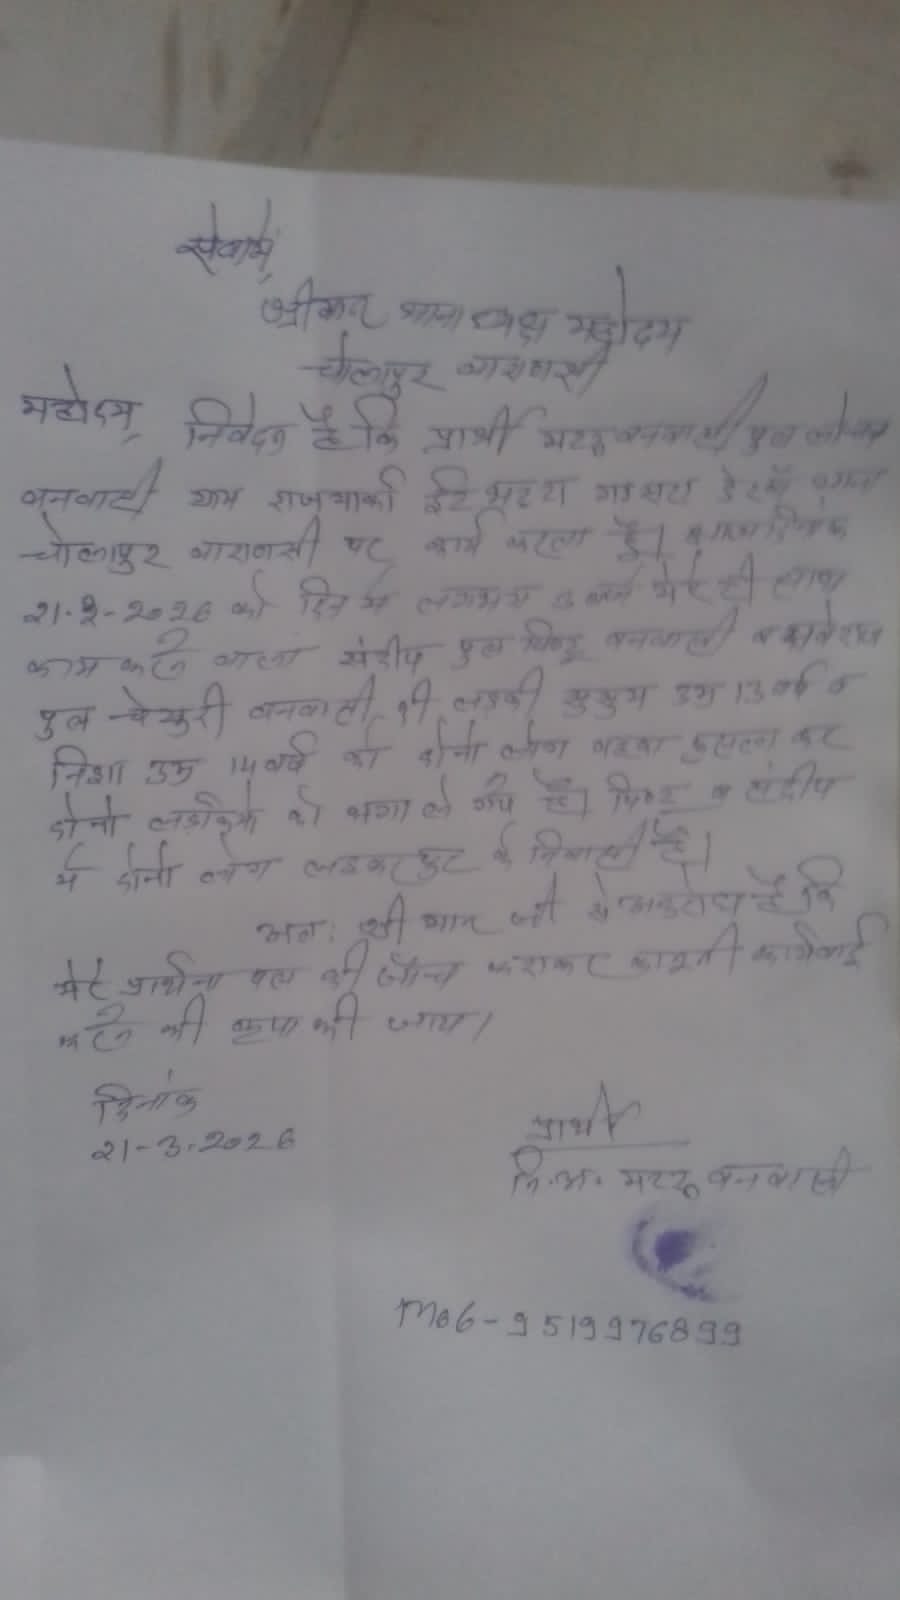 सेवामें,
श्रीमान थानाध्यक्ष महोदय
चोलापुर वाराणसी
महोदय,
निवेदन है कि प्रार्थी वनवासी पुत्र
वनवासी ग्राम ईट भट्टा
चोलापुर वाराणसी पर कार्य करता हूँ। दिनांक
21-3-2026 को दिन में लगभग 3 बजे मेरे ही साथ
काम करने वाला संदीप पुत्र वनवासी व
पुत्र वनवासी की लड़की कुसुम उम्र 13 वर्ष व
निशा उम्र 14 वर्ष को दोनो लोग बहला फुसला कर
दोनो लड़कियो को भगा ले गये है। व संदीप
ये दोनो लोग के निवासी है।
अतः श्री मान जी से अनुरोध है कि
मेरे प्रार्थना पत्र की जाँच कराकर कानूनी कार्यवाई
करने की कृपा की जाय।
दिनांक
21-3-2026
प्रार्थी
नि.अ. वनवासी
Mob-9519976899